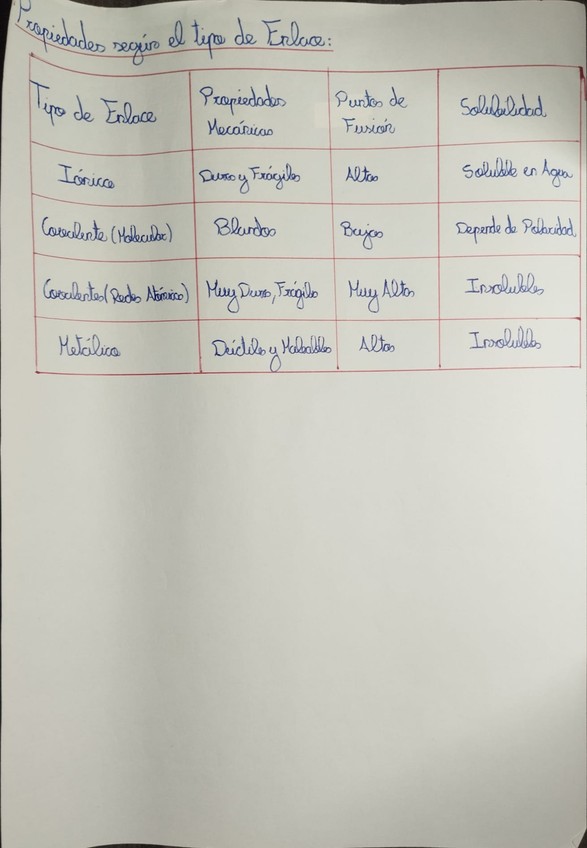 Propiedades según el tipo de Enlace:
Tipo de Enlace
Propiedades
Mecánicas
Puntos de
Fusión
Solubilidad
Iónico
Duros y Frágiles
Altos
Soluble en Agua
Covalente (Molecular)
Blandos
Bajos
Depende de Polaridad
Covalentes (Redes Atómicas)
Muy Duros, Frágiles
Muy Altos
Insolubles
Metálico
Dúctiles y Maleables
Altos
Insolubles